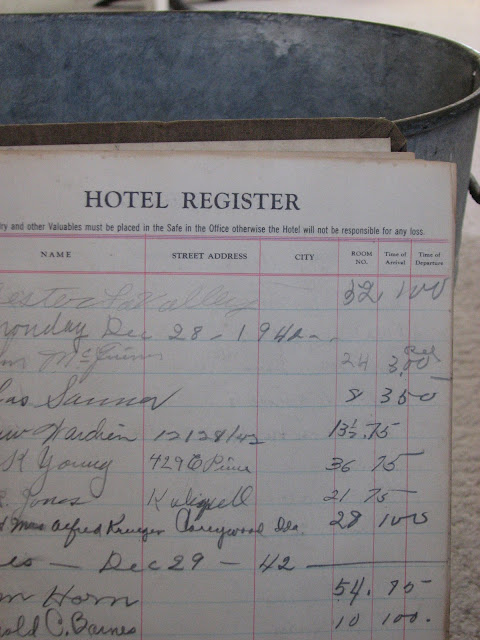 HOTEL REGISTER
ry and other Valuables must be placed in the Safe in the Office otherwise the Hotel will not be responsible for any loss.
NAME STREET ADDRESS CITY ROOM NO. Time of Arrival Time of Departure
ester LaValley 32, 100
onday Dec 28 - 1942
hn McGinn 24 3.00
8 350
Hardin 12/28/42 13½ .75
K Young 429 E Pine 36 75
Jones Kalispell 21 75
Mrs Alfred Krueger Careywood Ida. 28 100
es - Dec 29 - 42
m Horn 54. 75
old C. Barnes 10 100.